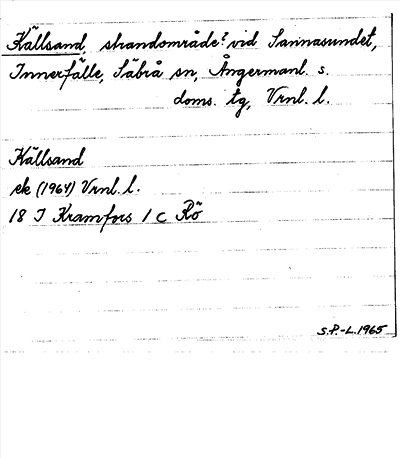 Källsand, strandområde? vid Sannasundet,
Innerfälle, Säbrå sn, Ångermanl. s.
doms. tg, Vrnl. l.
Källsand
ek (1964) Vrnl. l.
18 I Kramfors 1 c Rö
S.P.-L. 1965